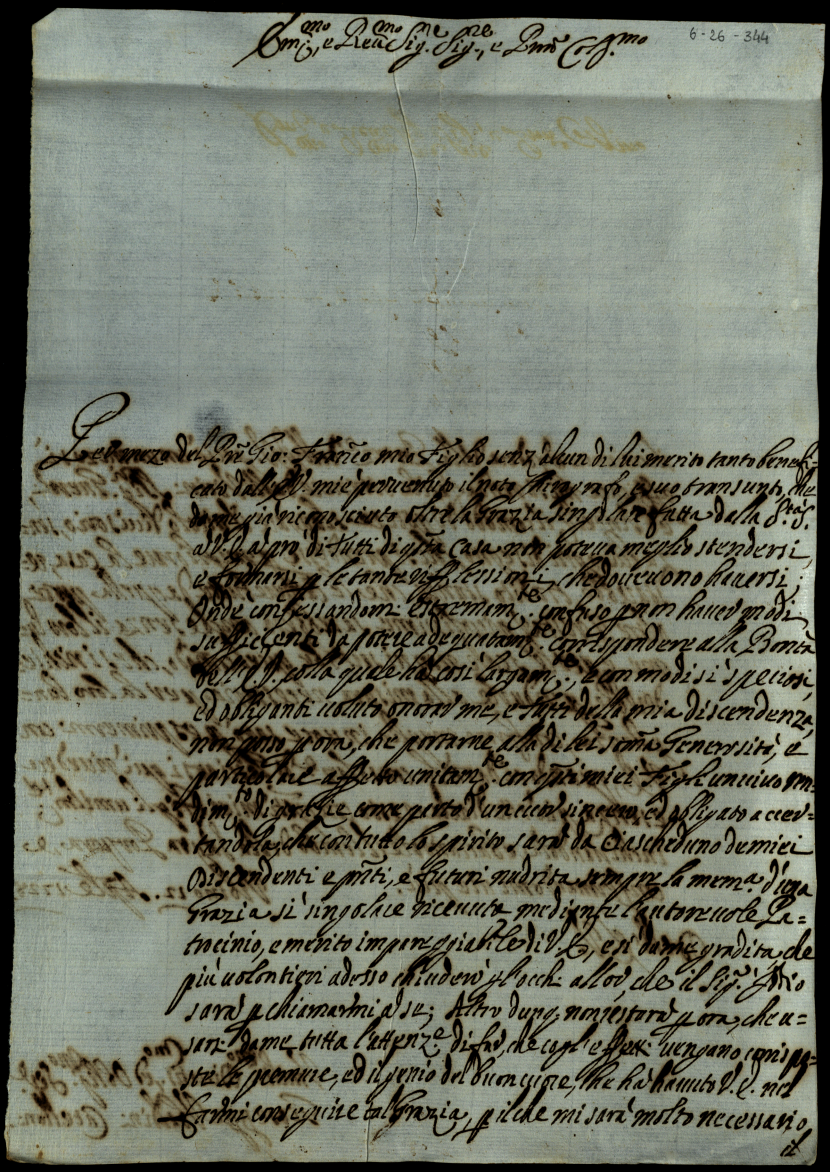 Em.mo, e Reu.mo Sig.re Sig.re, e Prōn Col.mo
6-26-344
Per mezo del Prē Gio: Franc̄o mio Figlio senz'alcun di lui merito tanto benefi-
cato dall'E.V. mi è peruenuto il noto Chirografo, e suo transunto, che
da me già riconosciuto oltre la Grazia singolare fatta dalla S.tà S.
a V.E. a prò di tutti di q̄sta Casa non poteua meglio stendersi,
e formarsi p̄ le tante riflessioni, che doueuono hauersi;
Onde confessandomi estremam.te confuso p̄ non hauer modi
sufficienti da potere adequatam.te corrispondere alla Bontà
dell'E.V. colla quale hà così largam.te, e con modi sì speciosi,
ed obliganti uoluto onorar me, e tutti della mia discendenza,
non posso p̄ ora, che portarne alla di lei som̄a Generosità, e
particolare affetto unitam.te con q̄sti miei Figli un uiuo ren-
dim.to di grazie come parto d'un cuor sincero, ed obligato accer-
tandola, che con tutto lo spirito sarà da ciascheduno de miei
Discendenti e p̄nti, e futuri nudrita sempre la mem.a d'una
Grazia sì singolare riceuuta mediante l'autoreuole Pa-
trocinio, e merito impareggiabile di V.E., e sì da me gradita, che
più uolontieri adesso chiuderò gl'occhi allor, che il Sig.re Iddio
sarà p̄ chiamarmi a se; Altro dunq. non resterà p̄ ora, che u-
sarsi da me tutta l'attenz.e di far, che cogl'effetti uengano corrispo-
ste le premure, ed il genio del buon cuore, che hà hauuto V.E. nel
farmi conseguire tal Grazia, p̄ il che mi sarà molto necessario
il